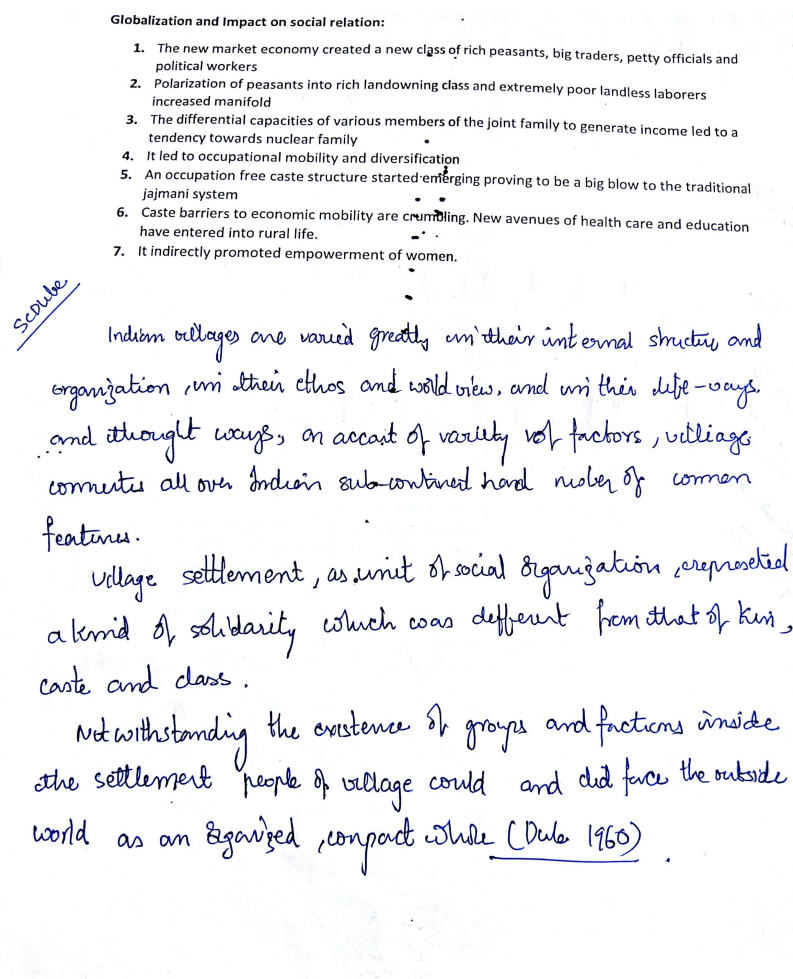 Globalization and Impact on social relation:
1. The new market economy created a new class of rich peasants, big traders, petty officials and
political workers
2. Polarization of peasants into rich landowning class and extremely poor landless laborers
increased manifold
3. The differential capacities of various members of the joint family to generate income led to a
tendency towards nuclear family
4. It led to occupational mobility and diversification
5. An occupation free caste structure started emerging proving to be a big blow to the traditional
jajmani system
6. Caste barriers to economic mobility are crumbling. New avenues of health care and education
have entered into rural life.
7. It indirectly promoted empowerment of women.
SCDube
Indian villages are varied greatly in their internal structure and
organization, in their ethos and world view, and in their life-ways
and thought ways, on accout of variety of factors, villiage
all over Indian sub-continent had of common
features.
Village settlement, as unit of social organization, represeted
a kind of solidarity which was different from that of kin,
caste and class.
Notwithstanding the existence of groups and factions inside
the settlement people of village could and did face the outside
world as an organized, compact whole (Dube 1960).